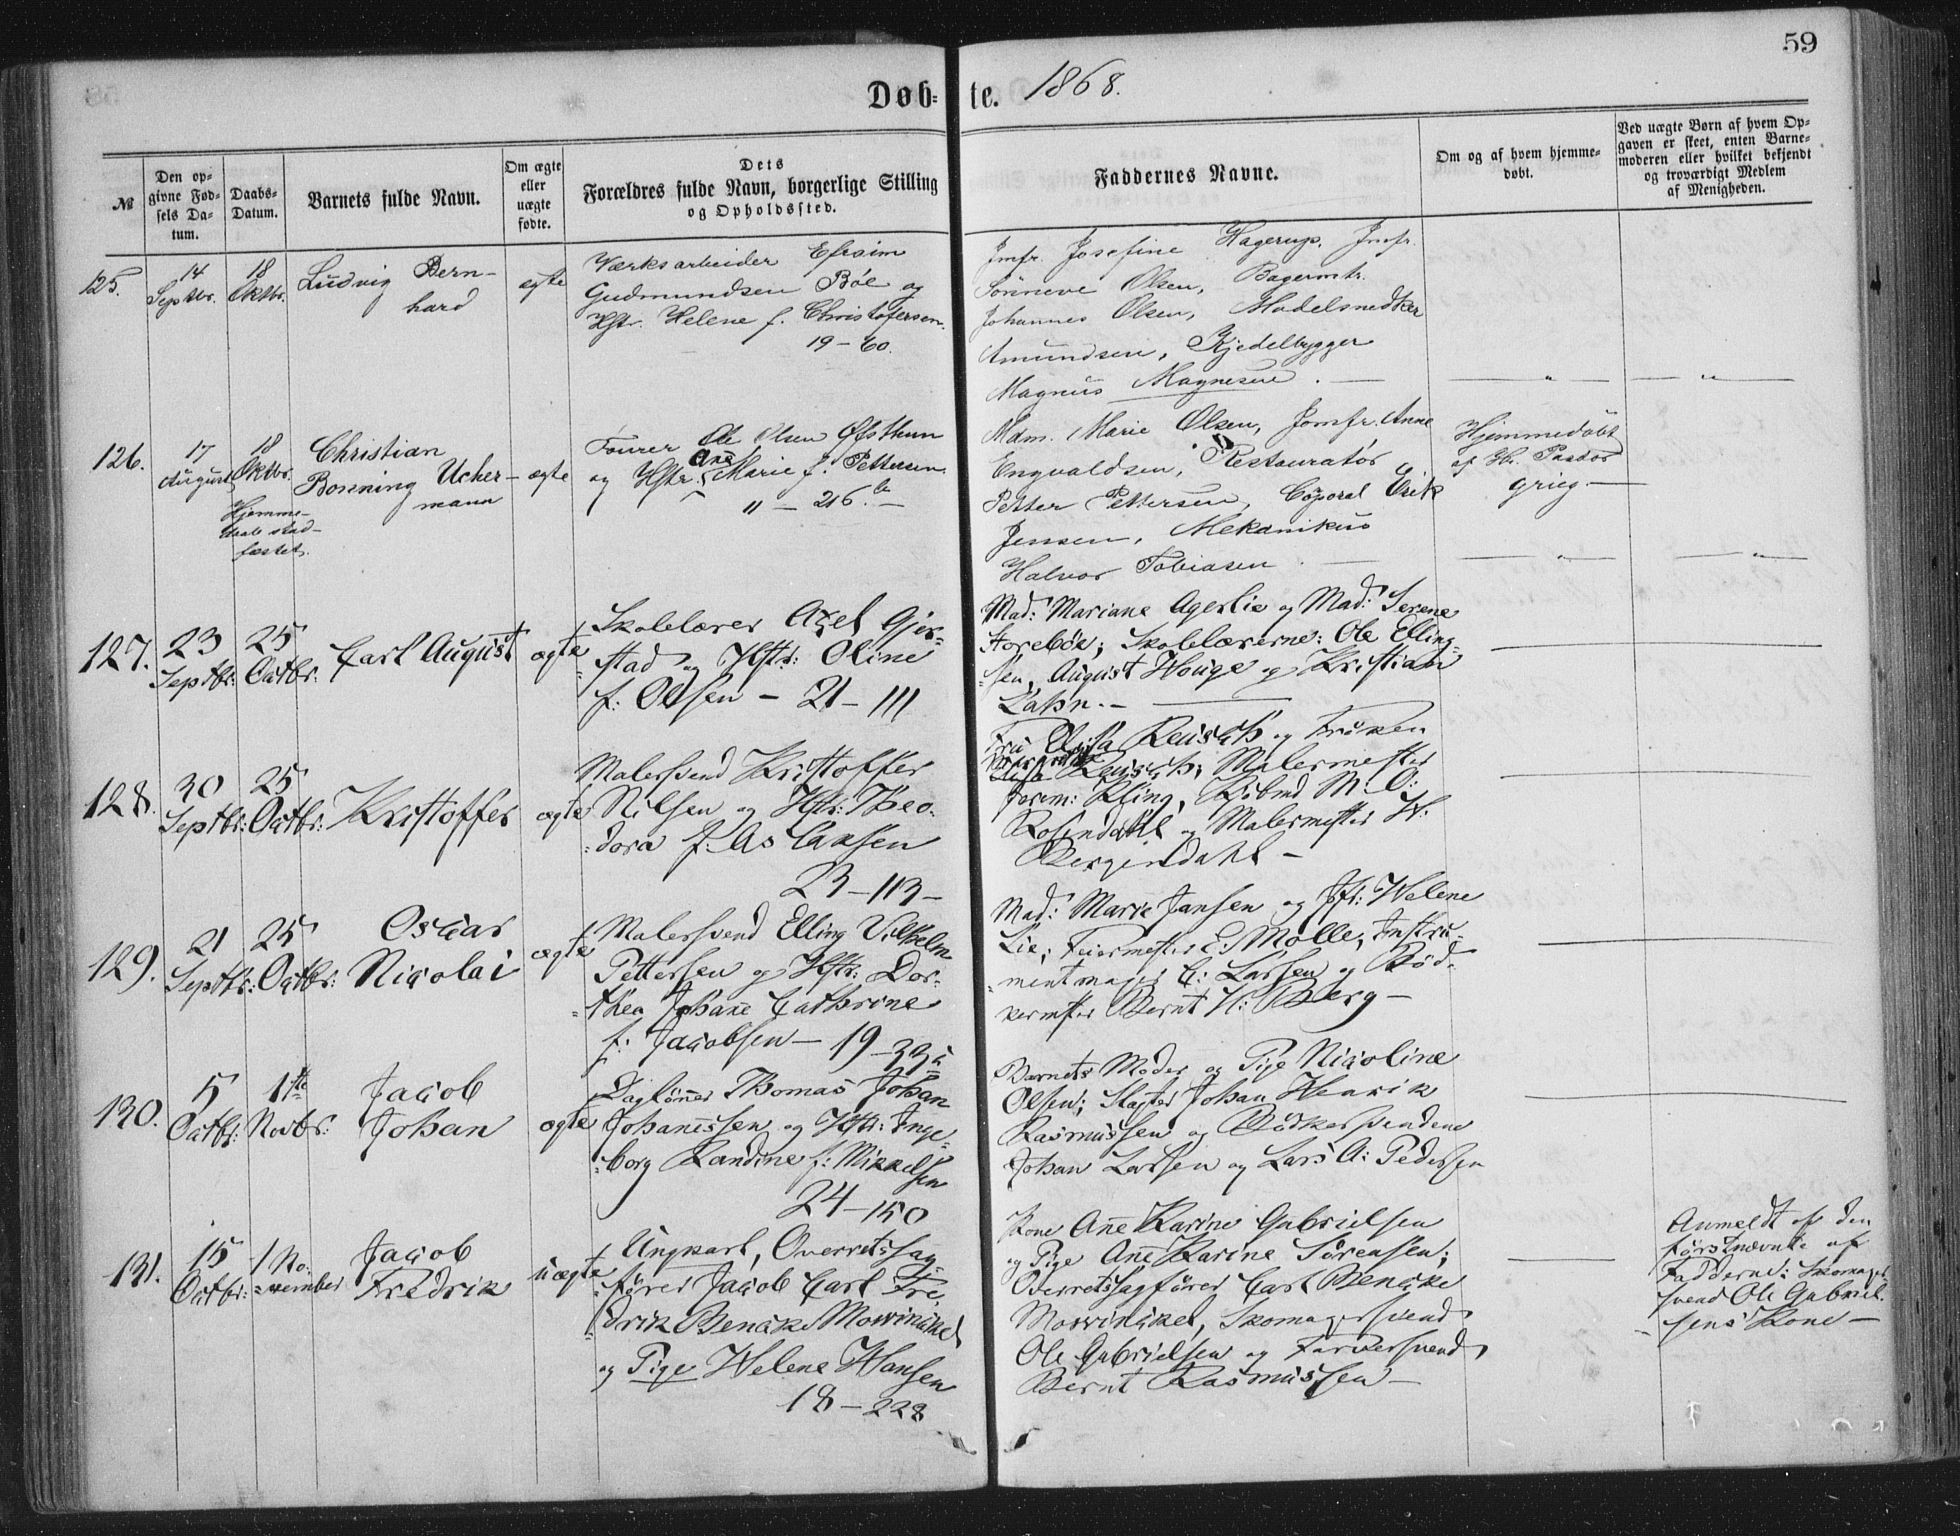 59
Døb-te. 1868.
№
Den opgivne Fødsels Datum.
Daabs-Datum.
Barnets fulde Navn.
Om ægte eller uægte fødte.
Dets Forældres fulde Navn, borgerlige Stilling og Opholdssted.
Faddernes Navne.
Om og af hvem hjemmedøbt.
Ved uægte Børn af hvem Opgaven er skeet, enten Barnemoderen eller hvilket bekjendt og troværdigt Medlem af Menigheden.
125.
14 Septbr.
18 Oktbr.
Ludvig Bern-
hard
ægte
Værksarbeider Efraim
Gudmundsen Bøe og
Hstr. Helene f. Christofersen.
19 - 60.
Jmfr. Josefine Hagerup. Jmfr.
Sønneve Olsen, Bagermtr.
Johannes Olsen, Modelsnedker
Amundsen, Kjedelbygger
Magnus Magnesen. —
— " —
— " —
126.
17 August
18 Oktbr.
Hjemme-
daab stad-
fæstet.
Christian
Bonning Ucher-
mann
ægte
Fourer Ole Olsen Øfsthun
og Hstr. Ane Marie f. Pettersen.
" — 216. b —
Mdm. Marie Olsen, Jomfr. Anne
Engvaldsen, Restauratør
Petter Pettersen, Coporal Erik
Jensen, Mekanikus
Halvor Tobiasen. —
Hjemmedöbt
af Hr. Pastor
Grieg. —
— " —
— " —
127.
23 Septbr:
25 Octbr:
Carl August
ægte
Skolelærer Axel Gjer-
stad og Hstr: Oline
f: Olsen — 21 — 111
Mad: Mariane Agerlie og Mad: Serene
Storebøe; Skolelærerne: Ole Elling-
sen, August Houge og Kristian
Lahn. —
128.
30 Septbr:
25 Octbr:
Kristoffer
ægte
Malersvend Kristoffer
Nilsen og Hstr: Theo-
dora f: Aslaksen
23 — 113 —
Fru Elisa Reusch og Frøken
Reusch; Malermester
Kling, M. O:
Rosendahl og Malermester H.
Bergendahl —
129.
21 Septbr:
25 Octbr:
Oscar
Nicolai
ægte
Malersvend Elling Vilhelm
Pettersen og Hstr: Dor-
thea Johane Cathrine
f: Jacobsen — 19 —
Mad: Marie Jansen og Jfr: Helene
Lie; Feiermester E: Mølle, Instru-
mentmager C: Larsen og Bød-
kermster Bernt H: Berg —
130.
5 Octbr:
1ste Novbr:
Jacob
Johan
ægte
Dagløner Thomas Johan
Johanessen og Hstr: Inge-
borg Randine f: Mikkelsen
24 — 150
Barnets Moder og Pige Nicoline
Olsen; Slagter Johan Henrik
Rasmussen og Bødkersvendene
Johan Larsen og Lars A: Pedersen
131.
15 Octbr:
1 No-
vember
Jacob
Fredrik
uægte
Ungkarl, Overretssag-
fører Jacob Carl Fre-
drik Bencke Mowinckel
og Pige Helene Hansen
18 — 228
Kone Ane Karine Gabrielsen
og Pige Ane Karine Sørensen;
Overretssagfører Carl Bencke
Mowinckel, Skomagersvend
Ole Gabrielsen og Farversvend
Bernt Rasmussen —
Anmeldt af den
førstnævnte af
Fadderne: Skomager-
svend Ole Gabriel-
sens Kone —